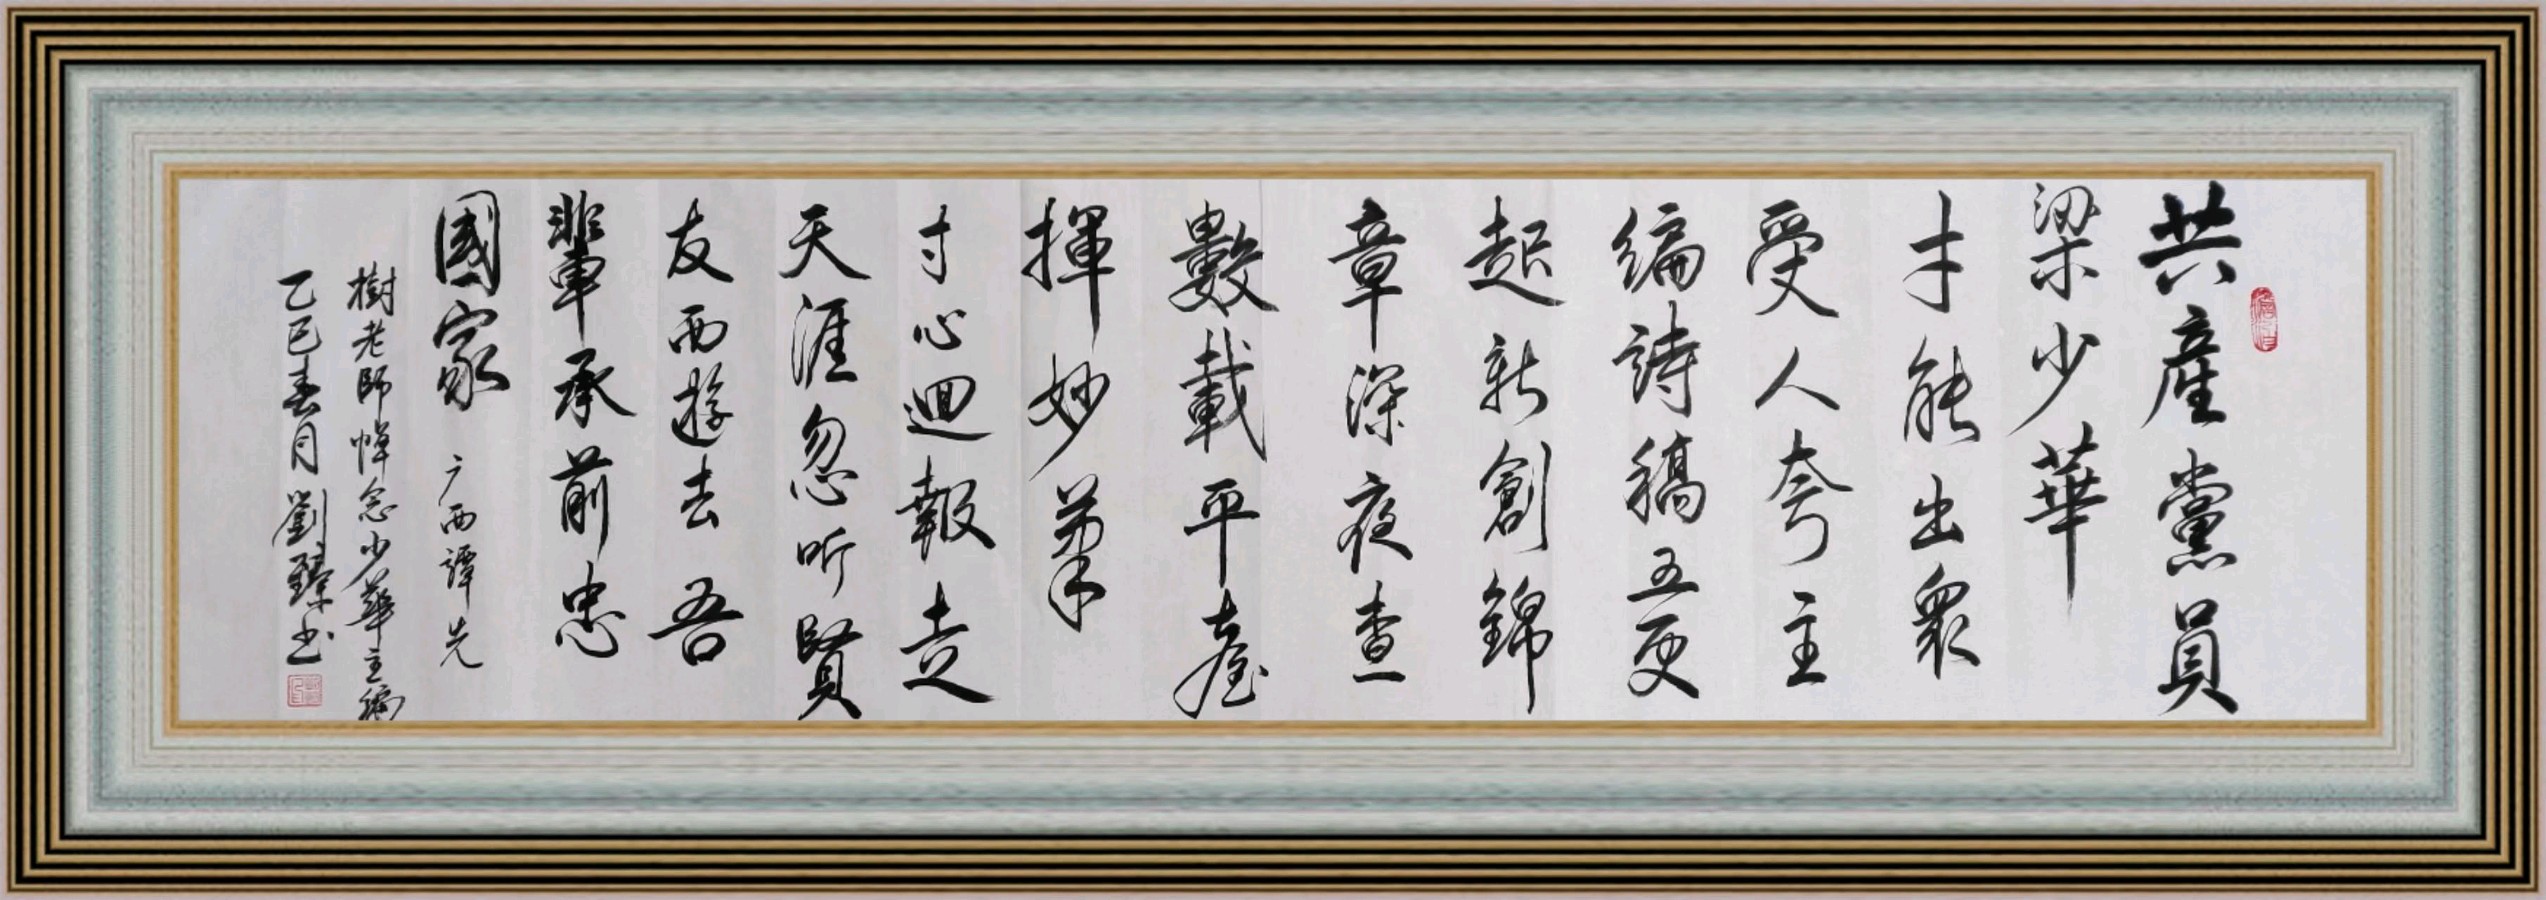 共産黨員
梁少華
才能出衆
受人夸主
编詩稿五更
起新創錦
章深夜查
數載平臺
揮妙筆
寸心迴報走
天涯忽听賢
友西遊去吾
輩承前忠
國家 广西譚先
樹老師悼念少華主编
乙巳春月劉臻书